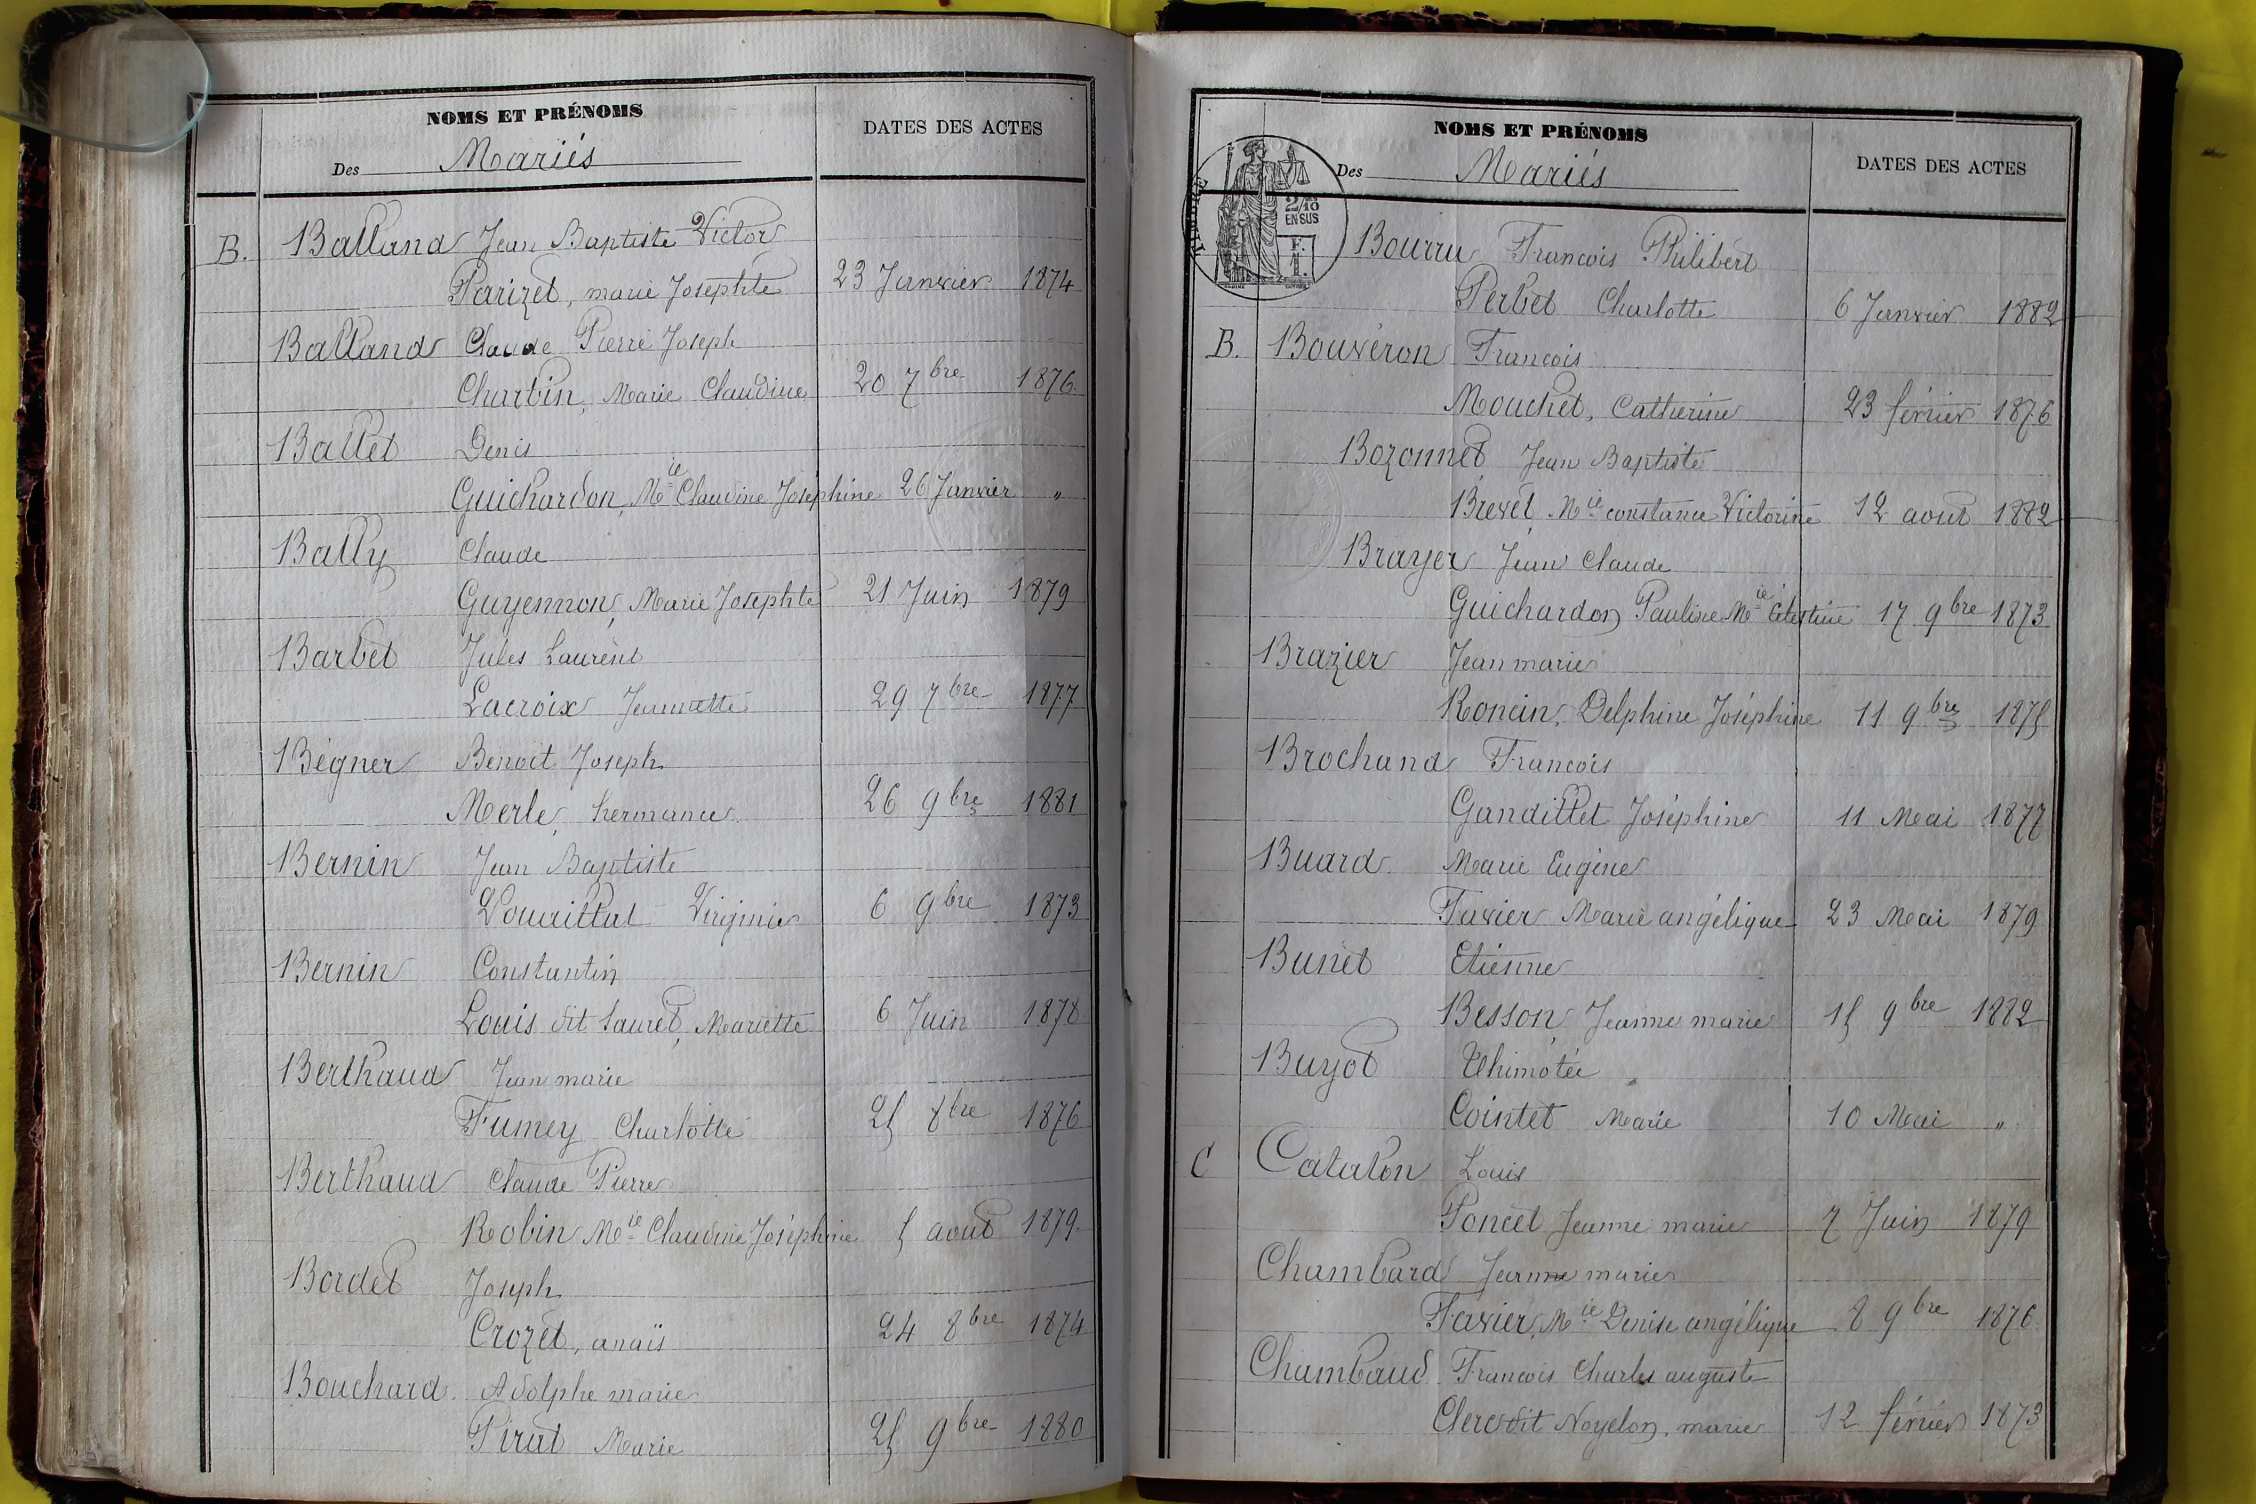 NOMS ET PRÉNOMS
DATES DES ACTES
Des Mariés
B. Balland Jean Baptiste Victor
Parizet, marie Josephte 23 Janvier 1874
Balland Claude Pierre Joseph
Charbin, Marie Claudine 20 7bre 1876
Ballet Denis
Guichardon, Mie Claudine Joséphine 26 Janvier "
Bally Claude
Guyennon, Marie Josephte 21 Juin 1879
Barbet Jules Laurent
Lacroix Jeannette 29 7bre 1877
Bégner Benoit Joseph
Merle, hermance 26 9bre 1881
Bernin Jean Baptiste
Virginie 6 9bre 1873
Bernin Constantin
Louis dit Lauret, Mariette 6 Juin 1878
Berthaud Jean marie
Fumey Charlotte 25 8bre 1876
Berthaud Claude Pierre
Robin Mie Claudine Joséphine 5 aout 1879
Bordet Joseph
Crozet, anaïs 24 8bre 1874
Bouchard Adolphe marie
Pirat Marie 25 9bre 1880
NOMS ET PRÉNOMS
DATES DES ACTES
Des Mariés
2/10
EN SUS
F.
1.
Bourru Francois Philibert
Perbet Charlotte 6 Janvier 1882
B. Bouvéron Francois
Mouchet, Catherine 23 février 1876
Bozonnet Jean Baptiste
Brevet Mie constance Victorine 12 aout 1882
Brayer Jean Claude
Guichardon Pauline Mie Célestine 17 9bre 1873
Brazier Jean marie
Roncin, Delphine Joséphine 11 9bre 1875
Brochand Francois
Gandillet Joséphine 11 Mai 1877
Buard Marie Eugène
Favier Marie angélique 23 Mai 1879
Bunet Etienne
Besson, Jeanne marie 15 9bre 1882
Buyot Thimotée
Cointet Marie 10 Mai "
C Catalon Louis
Poncet Jeanne marie 7 Juin 1879
Chambard Jeanne marie
Favier, Mie Denise angélique 8 9bre 1876
Chambaud Francois Charles auguste
Clerc dit Noyelon, marie 12 février 1873